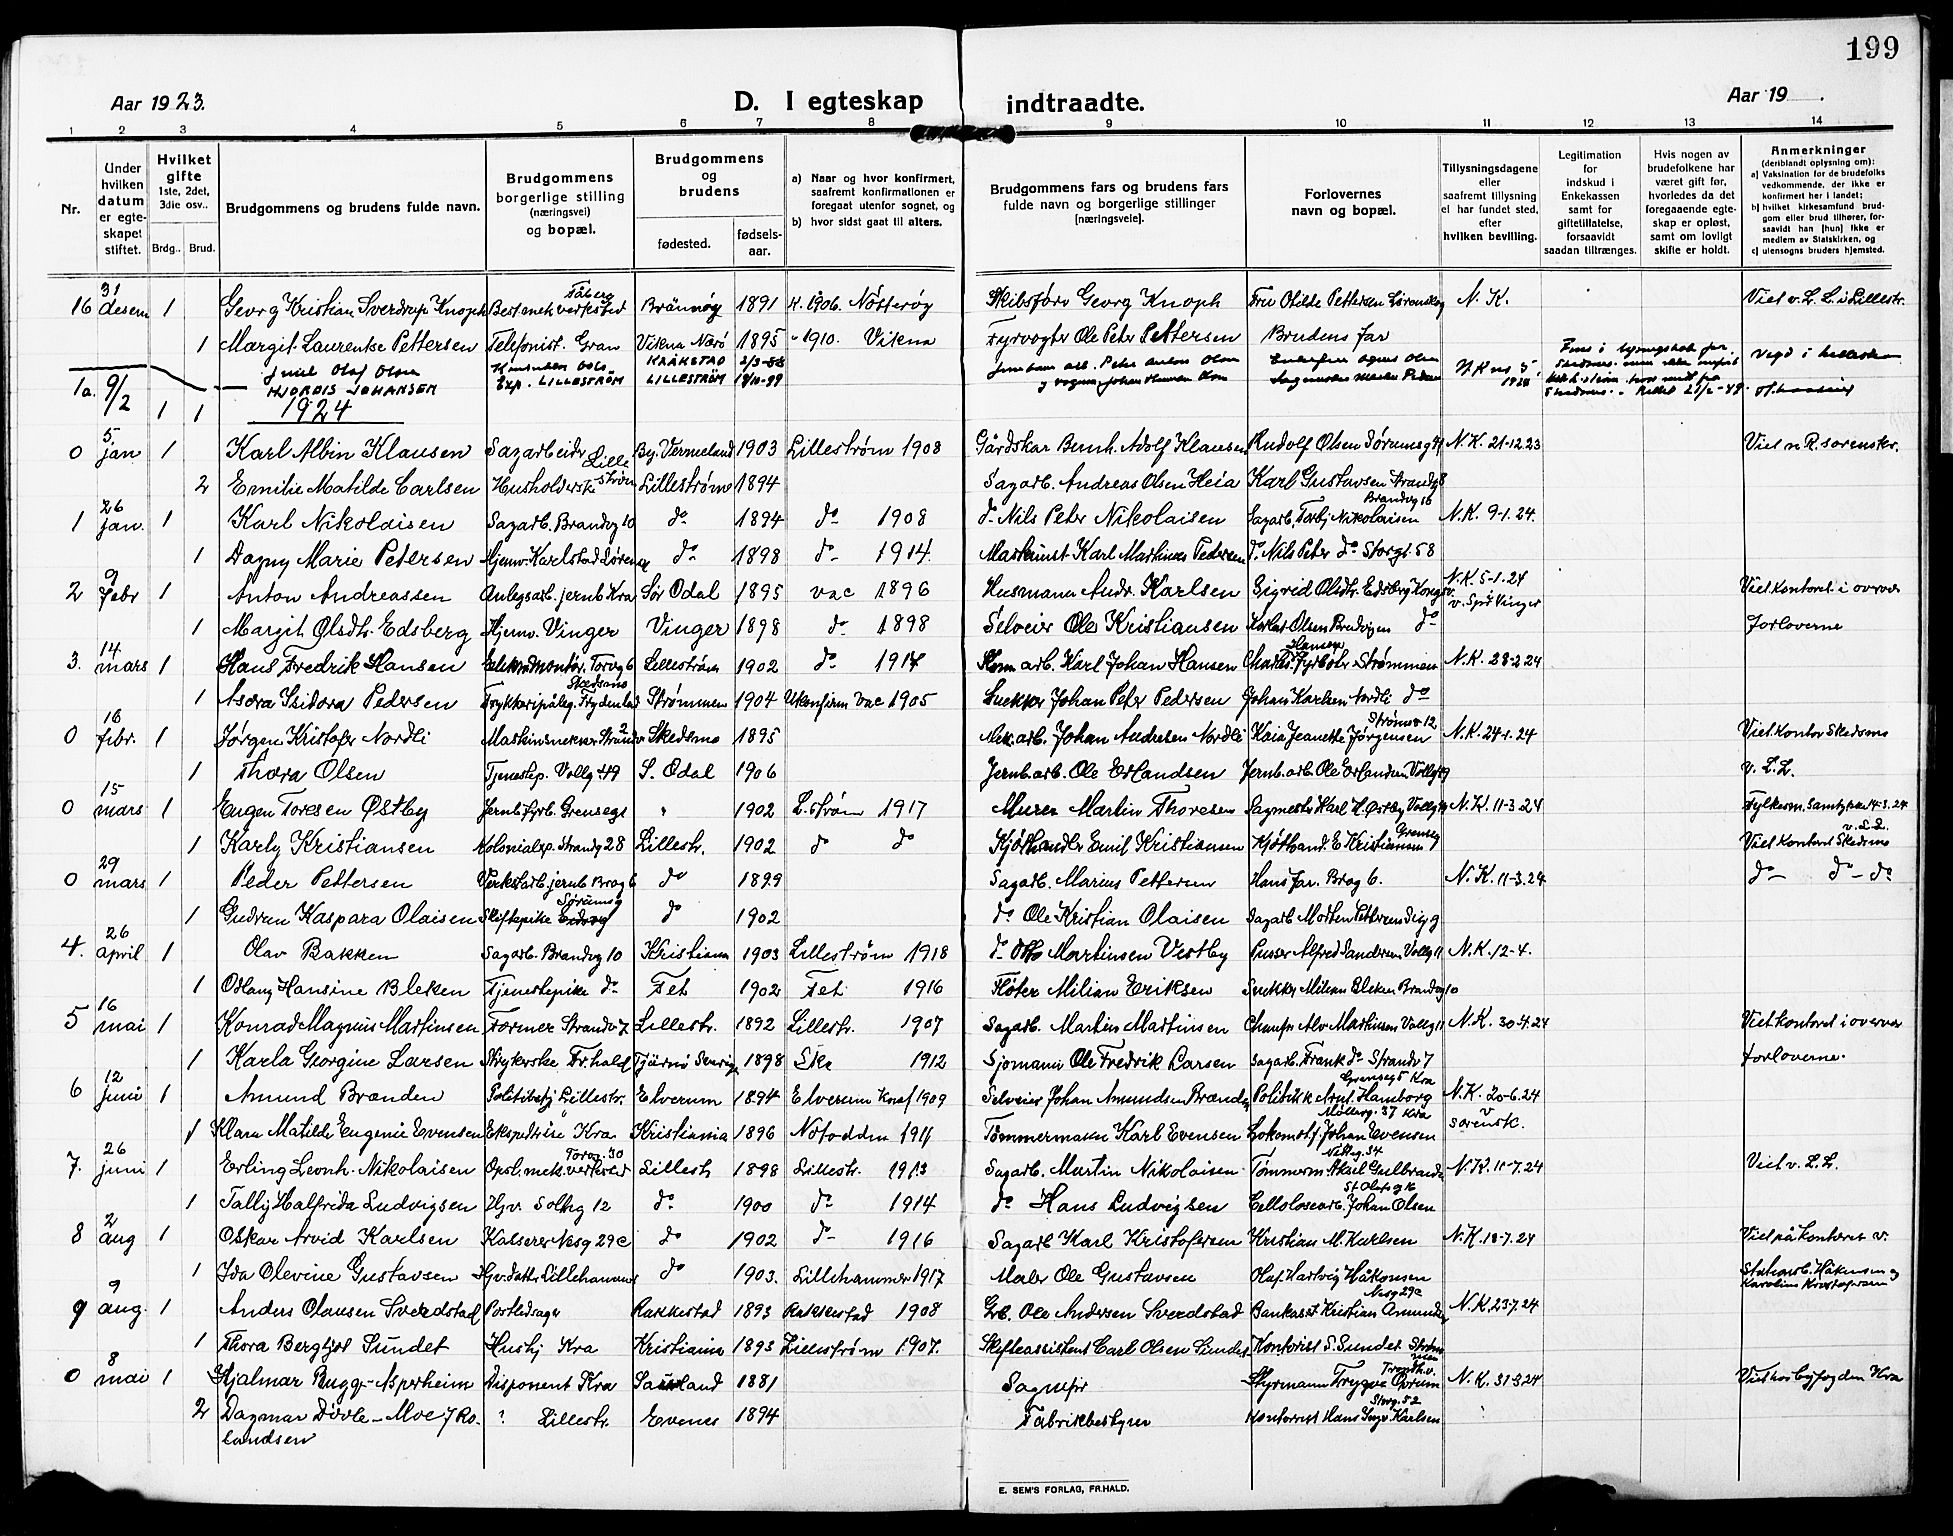 199
Aar 1923.
D. I egteskap indtraadte.
Aar 19 .
1 2 3 4 5 6 7 8 9 10 11 12 13 14
Nr.
Under hvilken datum er egteskapet stiftet.
Hvilket gifte 1ste, 2det, 3die osv..
Brdg.. Brud.
Brudgommens og brudens fulde navn.
Brudgommens borgerlige stilling (næringsvei) og bopæl.
Brudgommens og brudens
fødested. fødselsaar.
a) Naar og hvor konfirmert, saafremt konfirmationen er foregaat utenfor sognet, og
b) hvor sidst gaat til alters.
Brudgommens fars og brudens fars fulde navn og borgerlige stillinger [næringsveie].
Forlovernes navn og bopæl.
Tillysningsdagene eller saafremt tillysning ei har fundet sted, efter hvilken bevilling.
Legitimation for indskud i Enkekassen samt for giftetillatelse, forsaavidt saadan tiltrænges.
Hvis nogen av brudefolkene har været gift før, hvorledes da det foregaaende egteskap er opløst, samt om lovligt skifte er holdt.
Anmerkninger (deriblandt oplysning om):
a) Vaksination for de brudefolks vedkommende, der ikke er konfirmert her i landet;
b) hvilket kirkesamfund brudgom eller brud tilhører, forsaavidt han [hun] ikke er medlem av Statskirken, og
c) utensogns bruders hjemsted.
16 31 desem 1 Georg Kristian Sverdrup Knoph Best. mek verksted Brønnøy 1891 k. 1906. Nøtterøy Skibsfører Georg Knoph Fru Otilde Pettersen Lørenskog N. K. Viet v. L. L. i Lillestr.
1 Margit Laurentse Pettersen Telefonist. Gran Vikna Nærø 1895 " 1910. Vikna Fyrvogter Ole Peter Pettersen Brudens far
1a. 9/2 1 1 Emil Olaf Olsen KRÅKSTAD 2/3-88 Peter Anton Olsen Agnes Olsen
HJORDIS JOHANSEN Exp. LILLESTRØM LILLESTRØM 19/10-99
1924
0 5 jan 1 Karl Albin Klausen Sagarbeider Lillestrøm By. Vermeland 1903 Lillestrøm 1908 Gårdskar Bernh. Adolf Klausen Rudolf Olsen Sørumsg 41 N.K. 21-12.23 Viet v R. sorenskr.
2 Emilie Matilde Carlsen Husholderske Lillestrøm 1894 Sagarb. Andreas Olsen Heia Karl Gustavsen Strandg 8
1 26 jan. 1 Karl Nikolaisen Sagarb. Brandvg 10 do 1894 do 1908 do Nils Peter Nikolaisen Sagarb. Torbj Nikolaisen Brandvg 10 N.K. 9-1.24.
1 Dagny Marie Petersen Hjemv. Karlstad Sørum do 1898 do 1914. Maskinist Karl Martinus Pedersen do Nils Peter do Storgt. 58
2 9 febr 1 Anton Andreassen Anlegsarb. jernb Kra Sør Odal 1895 vac 1896 Husmann Andr. Karlsen Sigrid Olsdtr. Edsberg Kongsv. N.K. 5-1.24 v. Spr i Vinger Viet kontoret i overvær
1 Margit Olsdtr. Edsberg Hjemv. Vinger Vinger 1898 do 1898 Selveier Ole Kristiansen Olsen do Forloverne
3. 14 mars 1 Hans Fredrik Hansen Elektrdmontør. Torvg 6 Lillestrøm 1902 do 1917 Kom arb. Karl Johan Hansen Charles Hansen Fyrbøter Strømmen N.K. 28-2.24
1 Asora Isidora Pedersen Skedsmo Strømmen 1904 Ukonfirm vac 1905 Snekker Johan Peter Pedersen Johan Karlsen Nordli do
0 16 febr. 1 Jørgen Kristofer Nordli Skedsmo 1895 Mek. arb. Johan Andreas Nordli Kaia Jeanette Jørgensen Strømsv 12 N.K. 24-1.24 Viet. kontor Skedsmo
1 Thora Olsen Tjenestep. Vollg 49 S. Odal 1906 Jernb. arb. Ole Erlandsen Jernb. arb Ole Erlandsen Vollg 49 v. L.L.
0 15 mars 1 Eugen Toresen Østby Jernb fyrb. Grenseg 1 " 1902 L. strøm 1917 Murer Martin Thoresen Sagmester Karl H Østby Vollg 19 N.K. 11-3.24 Fylkesm. Samtykke 14-3.24 v. L.L.
1 Karly Kristiansen Kolonialexp. Strandg 28 Lillestr. 1902 do do Kjøthandler Emil Kristiansen Kjøthand. E Kristiansen Grenseg Viet kontoret Skedsmo
0 29 mars 1 Peder Pettersen Verkstarb. jernb Brog 6 do 1899 Sagarb. Marius Pettersen Hans far. Brog 6. N.K. 11-3.24 do do do
1 Gudrun Kaspara Olaisen Skiftepike Sørumsg do 1902 do Ole Kristian Olaisen Sagarb Morten Pettersen
4. 26 april 1 Olav Bakken Sagarb. Brandvg 10 Kristiania 1903 Lillestrøm 1918 do Otto Martinsen Vestby Pusser Alfred Sandersen Vollg 11 N.K. 12-4.
1 Odlaug Hansine Bleken Tjenestepike do Fet 1902 Fet 1916 Fløter Milian Eriksen Snekker Milian Bleken Brandvg 10
5 16 mai 1 Konrad Magnus Martinsen Former Strandv 7 Lillestr. 1892 Lillestr. 1907 Sagarb. Martin Martinsen Alv Martinsen Vollg 11 N.K. 30-4.24 Viet kontoret i overvær
1 Karla Georgine Larsen Strykerske Fr.hald Tjärnö Sverige 1898 Ske 1912 Sjømann Ole Fredrik Larsen Sagarb. Frank do Strandv 7 forloverne.
6 12 juni 1 Amund Brænden Politibetj Lillestr. Elverum 1894 Elverum Konf 1909 Selveier Johan Amundsen Brænden Politikk Arnt. Hamborg Grenseg 5 Kra N.K. 20-6.24 v sorensk.
1 Klara Matilde Eugenie Evensen Ekspeditrise Kra Kristiania 1896 Notodden 1911 Tømmermann Karl Evensen Lokomotf. Johan Evensen Møllerg. 37 Kra
7. 26 juni 1 Erling Leonh. Nikolaisen Opsl. mek. verksted Torvg. 30 Lillestr 1898 Lillestr. 1913 Sagarb. Martin Nikolaisen Tømmerm. Karl Gulbrands Nittbg. 34 N.K. 11-7.24 Viet v. L.L.
1 Tally Halfrida Ludvigsen Hjv. Solhg 12 do 1900 do 1914 do Hans Ludvigsen Cellolosearb. Johan Olsen St. Olafsg 16
8 2 aug 1 Oskar Arvid Karlsen Kasserer Nesg 29c do 1902 do 1916 Sagarb Karl Kristofersen Kristian M. Karlsen N.K. 18-7.24 Viet på kontoret v.
1 Ida Olevine Gustavsen Hjv. datter Lillehammer do 1903. Lillehammer 1917 Maler Ole Gustavsen Olaf Hartvig Håkonsen Nesg 29c Stationsb. Håkonsen og Karoline Kristofersen
9 9 aug. 1 Anders Olausen Sverdstad Postledsager Rakkestad 1893 Rakkestad 1908 Grb. Ole Andersen Sverdstad Bankasst Kristian Amundsen N.K. 23-7.24
1 Thora Bergljot Sundet Hushj Kra Kristiania 1893 Lillestrøm 1907. Skifteassistent Carl Olsen Sundet Kontorist S. Sundet Strømmen
0 8 mai 1 Hjalmar Bugge-Asperheim Disponent Kra Sauland 1881 Sogneprest Styrmann Trygve Overum Trondh.v. N.K. 31-3.24 Viet hos byfogden Kra
2 Dagmar Døvle-Moe f Rolandsen ? Lillestr. Evenes 1894 Fabrikbestyrer Kontorist Hans Ingv Karlsen Storg. 52
E. SEM'S FORLAG, FR.HALD.